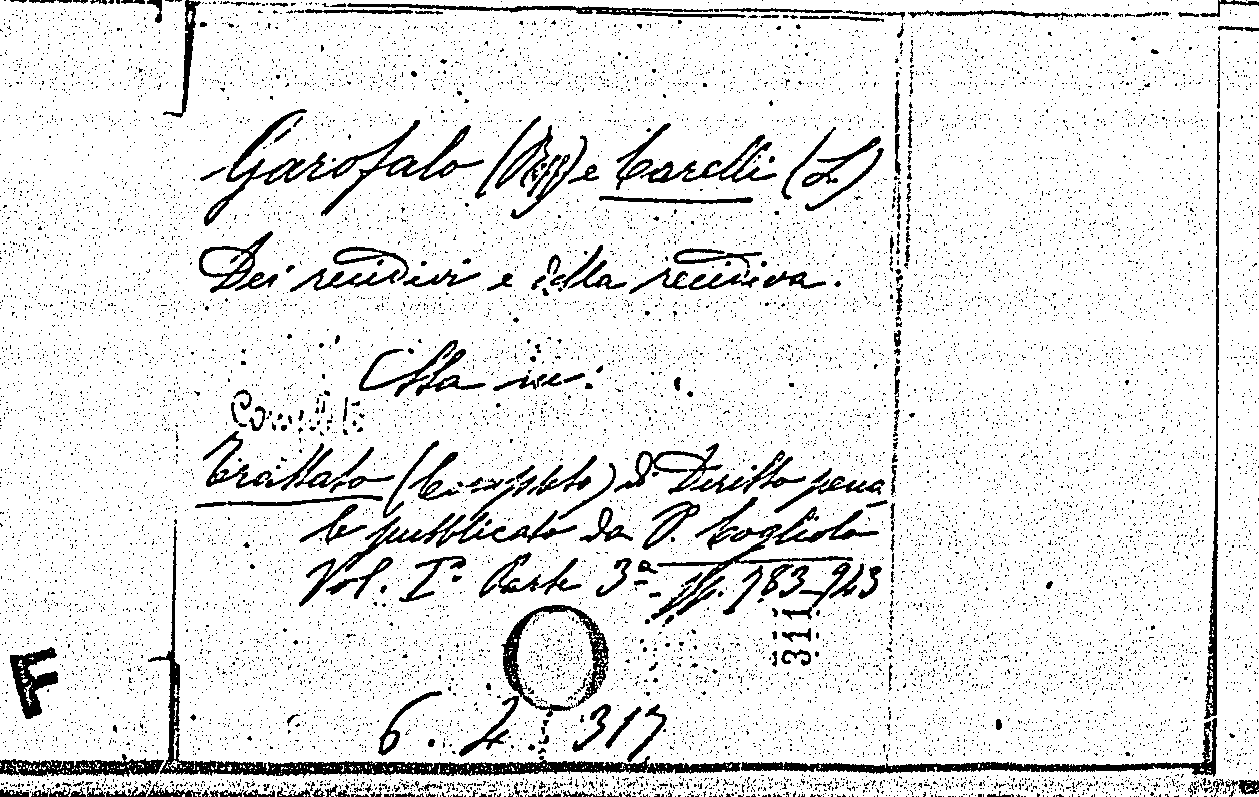 Garofalo () e Carelli (L)
Dei recidivi e della recidiva.
Sta in:
Completo
Trattato (Completo) di Diritto pena
le pubblicato da P. Cogliolo
Vol. Iº Parte 3ª pp. 783-943
311
F
6. 4. 317